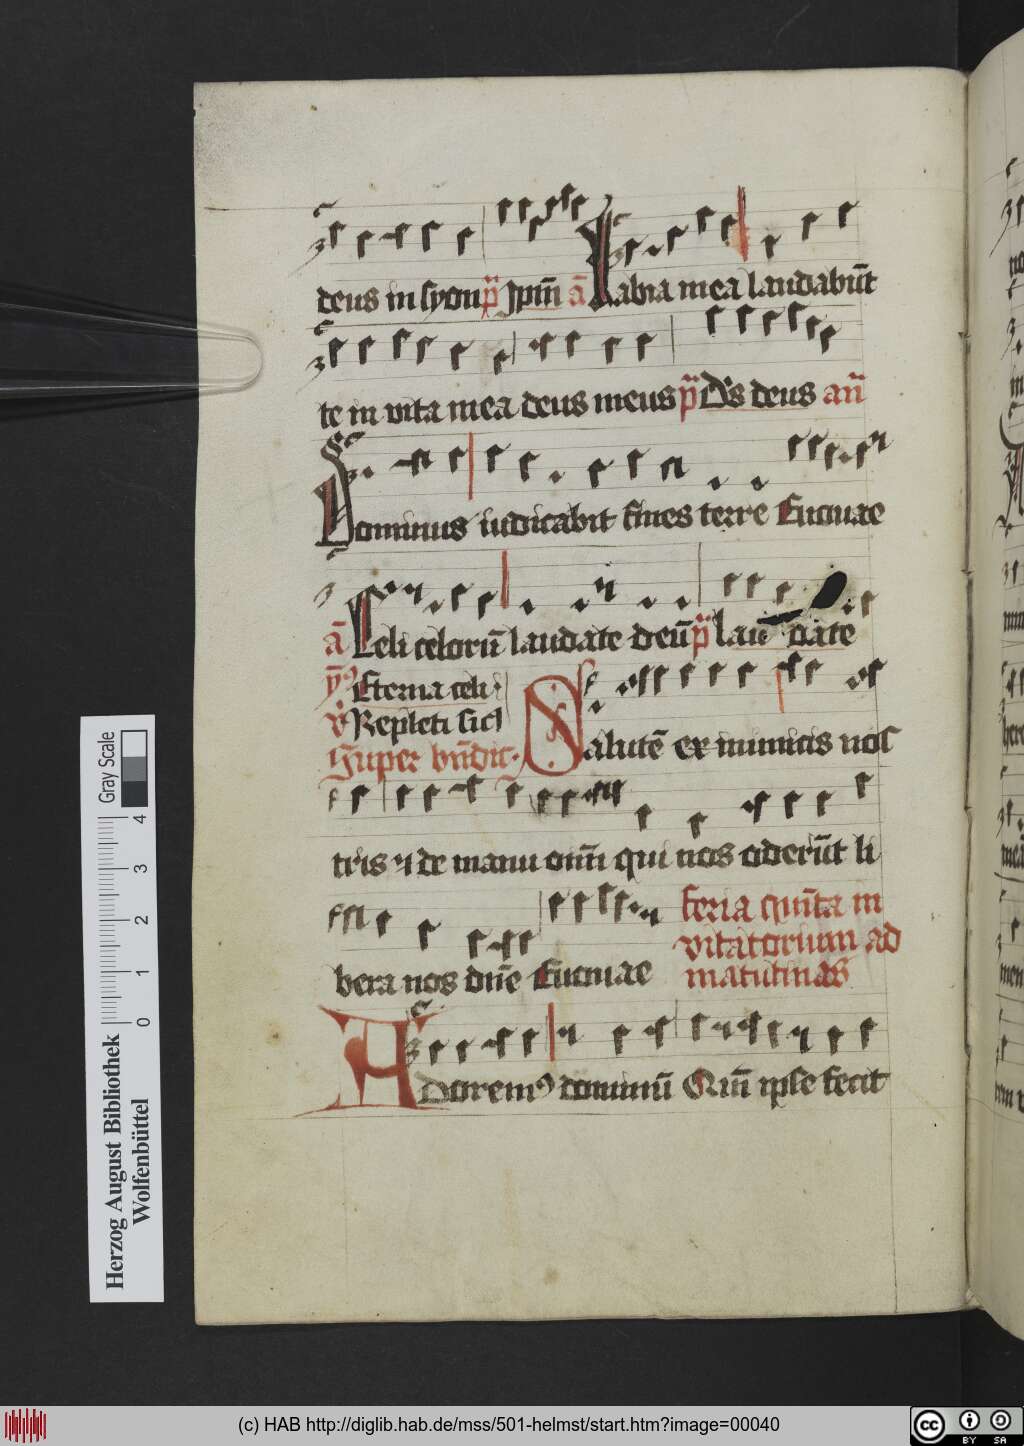 deus in syon p̄ Ipm̄ ā Labia mea laudabūt
te in vita mea deus meus p̄ Ds deus an̄
Dominus iudicabit fines terre Euouae
ā Celi celorū laudate deū p̄ lau date
Eterna celi
Repleti sicl
Super bn̄dic. Salutē ex inimicis nos
tris ⁊ de manu om̄i qui nos oderūt li
bera nos dn̄e Euouae feria quīta in
vitatorium ad
matutinas
Adoremꝰ dominū Qm̄ ipse fecit
Gray Scale
0 1 2 3 4
Herzog August Bibliothek
Wolfenbüttel
(c) HAB http://diglib.hab.de/mss/501-helmst/start.htm?image=00040
cc BY SA